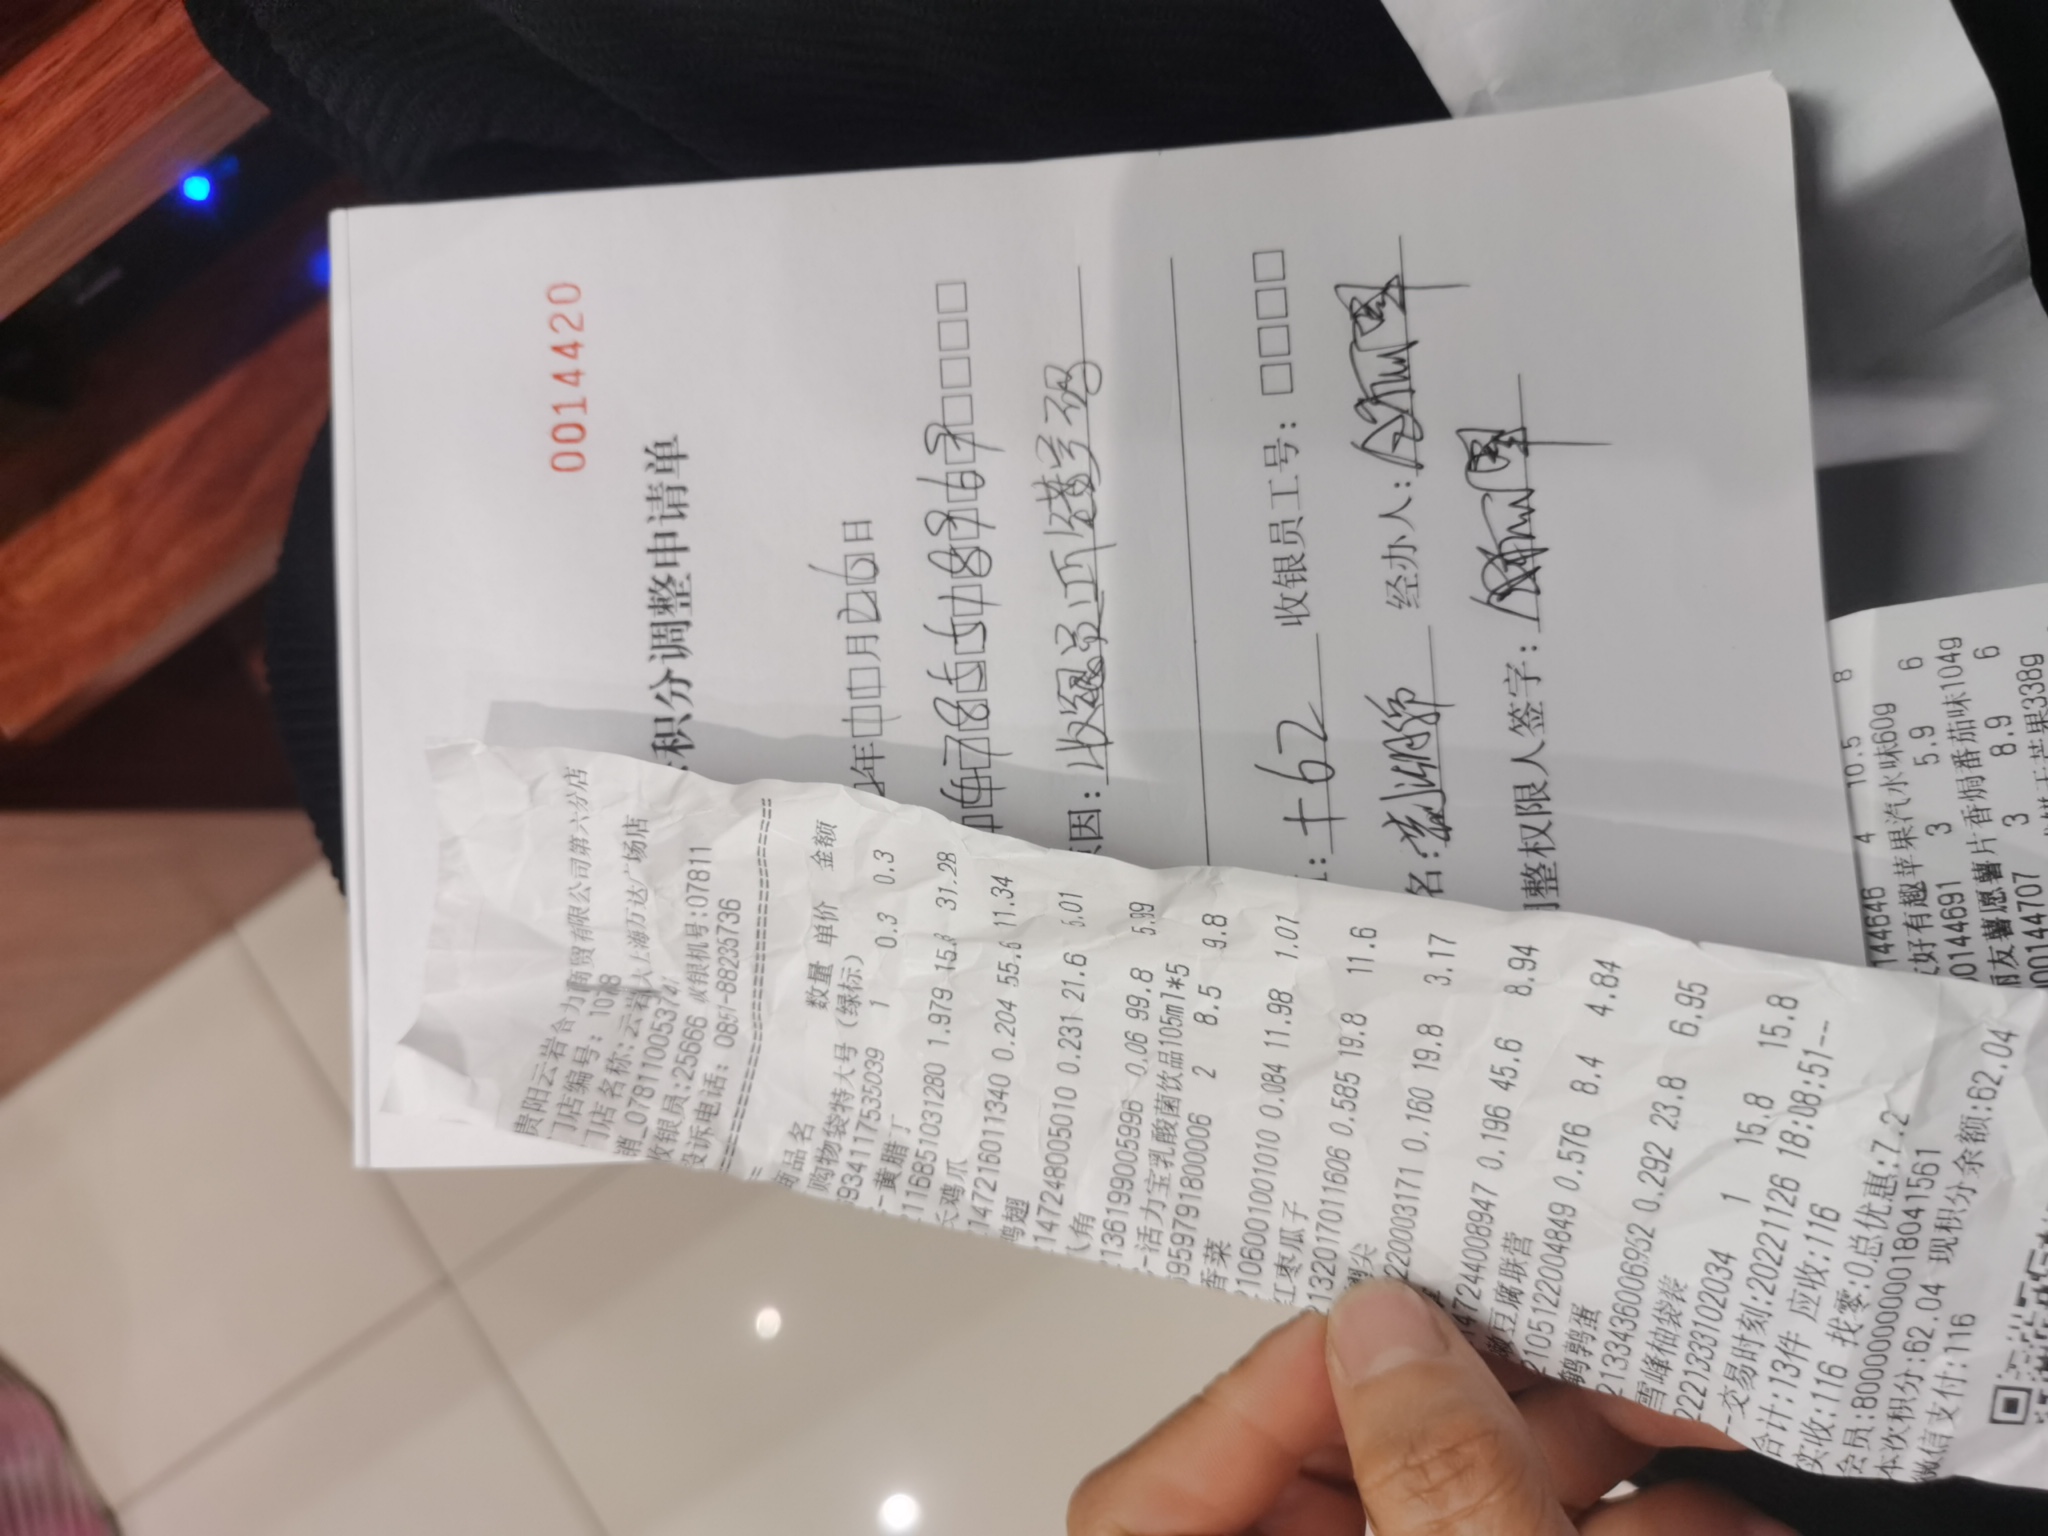 0014420
积分调整申请单
年 月26日
因:收银员
收银员工号:
+62
名:
经办人:
整权限人签字:
贵阳云岩合力商贸有限公司第六分店
门店编号: 1018
门店名称:云岩 上海万达广场店
销_0781100537
收银员:25666 收银机号:07811
投诉电话: 0851-88235736
商品名 数量 单价 金额
购物袋特大号(绿标)
3934117535039 1 0.3 0.3
-黄腊丁
2116851031280 1.979 15.8 31.28
鸡爪
2147216011340 0.204 55.6 11.34
鸡翅
2147248005010 0.231 21.6 5.01
八角
2136199005996 0.06 99.8 5.99
-活力宝乳酸菌饮品105ml*5
6959791800006 2 8.5 9.8
香菜
2106001001010 0.084 11.98 1.01
红枣瓜子
2132017011606 0.585 19.8 11.6
尖
220003171 0.160 19.8 3.17
24008947 0.196 45.6 8.94
豆腐联营
2105122004849 0.576 8.4 4.84
鹌鹑蛋
2133436006952 0.292 23.8 6.95
雪峰柚袋装
2221333102034 1 15.8 15.8
--交易时刻:20221126 18:08:51--
合计:13件 应收:116
实收:116 找零:0总优惠:7.2
会员:8000000000018041561
本次积分:62.04 现积分余额:62.04
微信支付:116
144646 4 10.5 8
好有趣苹果汽水味60g
00144691 3 5.9 6
友薯愿薯片香焗番茄味104g
00144707 3 8.9 6
芒果338g